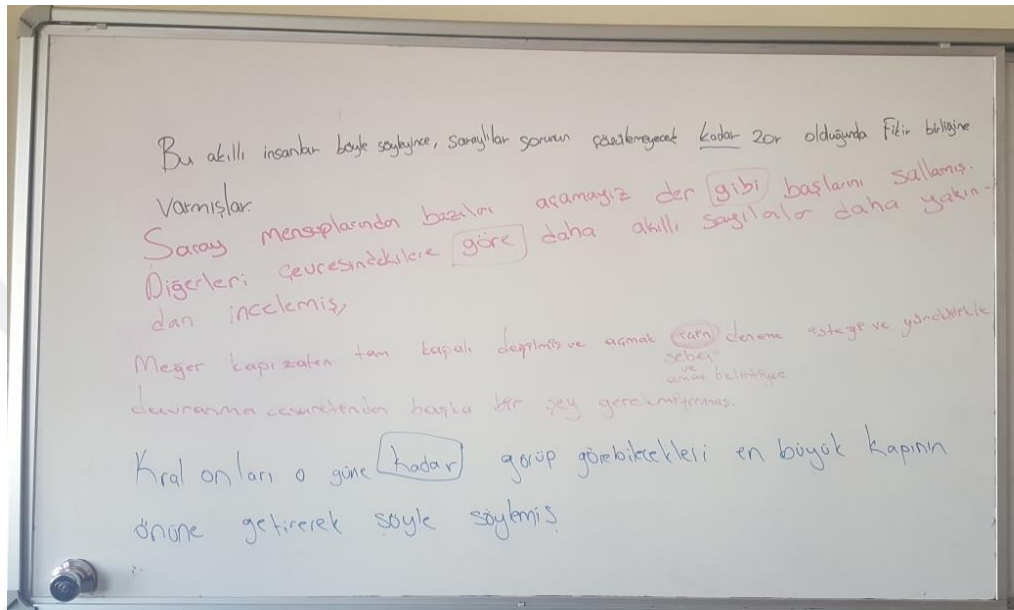 Bu akıllı insanlar böyle söyleyince, saraylılar sorunun çözülemeyecek kadar zor olduğunda Fikir birliğine
varmışlar.
Saray mensuplarından bazıları açamayız der gibi başlarını sallamış.
Diğerleri çevresindekilere göre daha akıllı sayılalar daha yakın-
dan incelemiş,
Meğer kapı zaten tam kapalı değilmiş ve açmak için deneme isteği ve yüreklilikle
sebep
ve
amaç belirtiyor
davranma cesaretinden başka bir şey gerekmiyormuş.
Kral onları o güne kadar görüp görebilecekleri en büyük kapının
önüne getirerek şöyle söylemiş